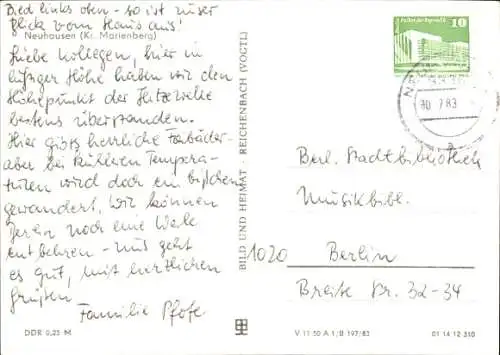 Bild links oben – so ist unser
Blick vom Haus aus!
Neuhausen (Kr. Marienberg)
Liebe Kollegen, hier in
luftiger Höhe haben wir den
Höhepunkt der Hitzewelle
bestens überstanden.
Hier gibts herrliche
aber bei kühleren Tempera-
turen wird doch ein bißchen
gewandert. Wir können
Berlin noch eine Weile
entbehren – uns geht
es gut, mit herzlichen
Grüßen
Familie
DDR 0,25 M
BILD UND HEIMAT REICHENBACH (VOGTL)
10
30.7.83
Berl. Stadtbibliothek
Musikbibl.
1020 Berlin
Breite Str. 32-34
V 11 50 A 1/B 197/83
01 14 12 310